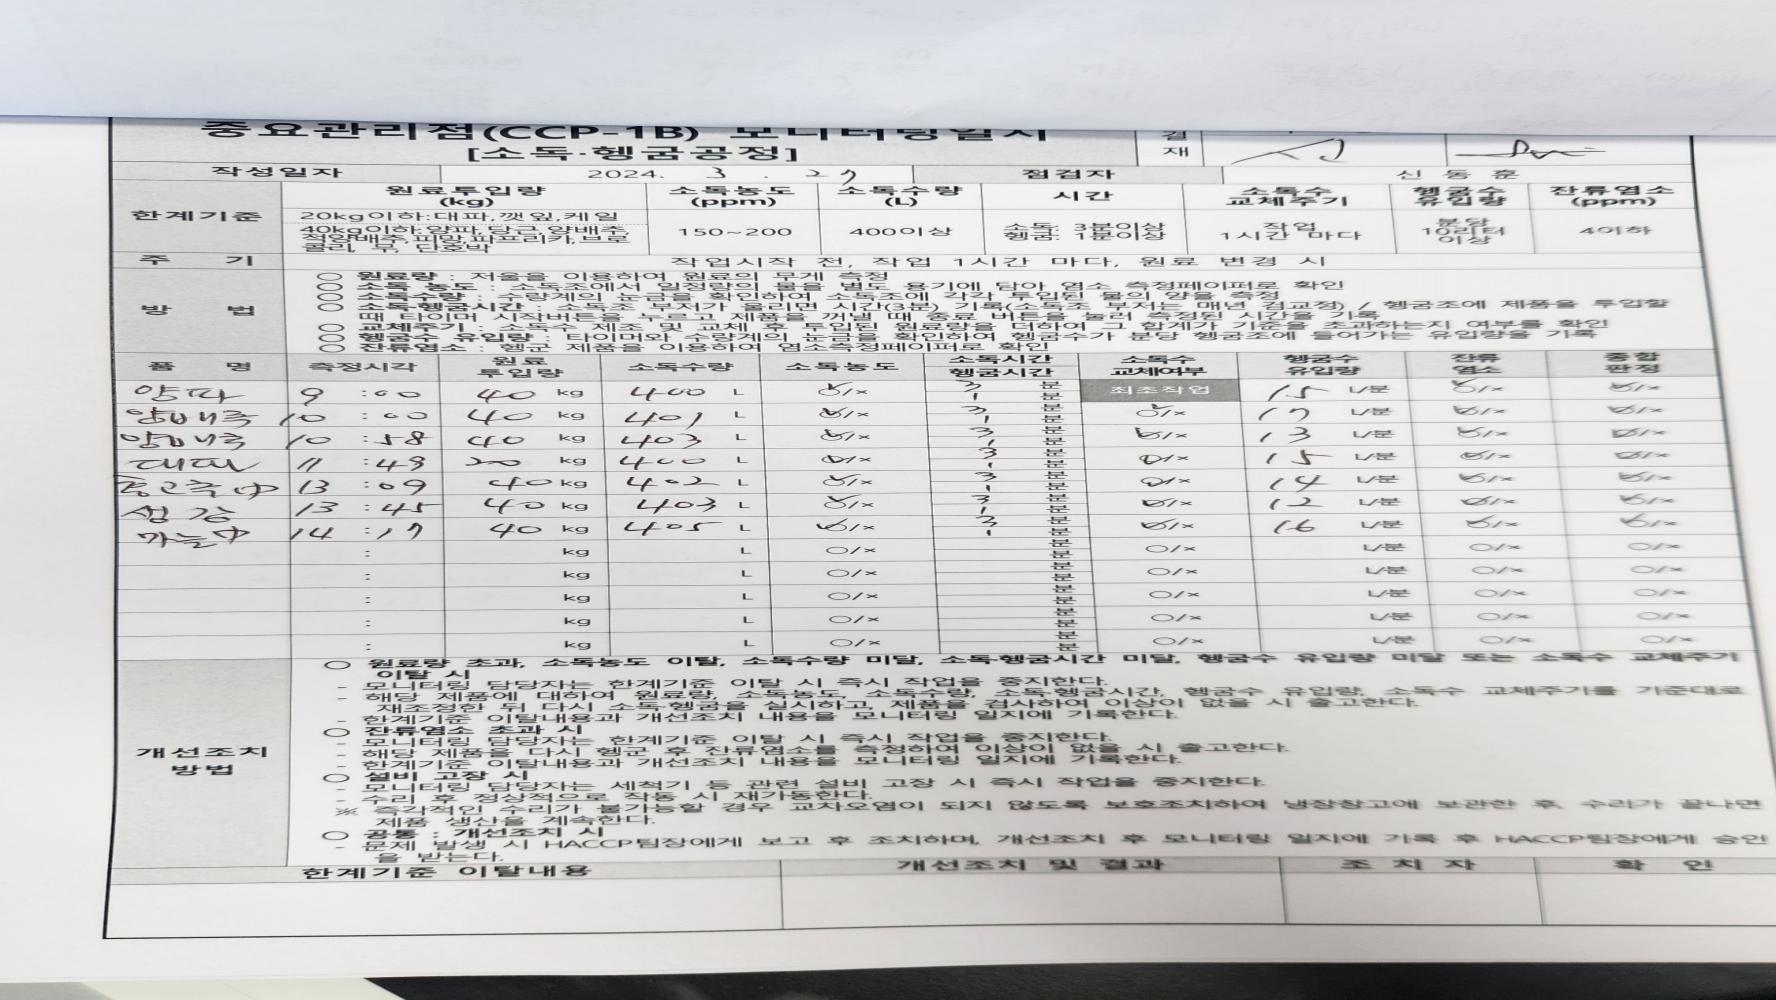 중요관리점(CCP-1B) 모니터링일지
[소독·헹굼공정]
결재
작성일자 2024. 3 . 27 점검자 신동훈
한계기준 원료투입량 (kg) 소독농도 (ppm) 소독수량 (L) 시간 소독수 교체주기 헹굼수 유입량 잔류염소 (ppm)
20kg이하:대파,깻잎,케일
40kg이하:양파,당근,양배추, 적양배추,피망,파프리카,브로콜리, 무, 단호박 150~200 400이상 소독: 3분이상 헹굼: 1분이상 작업 1시간 마다 분당 10리터 이상 4이하
주 기 작업시작 전, 작업 1시간 마다, 원료 변경 시
방 법
○ 원료량 : 저울을 이용하여 원료의 무게 측정
○ 소독 농도 : 소독조에서 일정량의 물을 별도 용기에 담아 염소 측정페이퍼로 확인
○ 소독수량 : 수량계의 눈금을 확인하여 소독조에 각각 투입된 물의 양을 측정
○ 소독·헹굼시간 : 소독조 부저가 울리면 시간(3분) 기록(소독조 부저는 매년 검교정) / 헹굼조에 제품을 투입할
때 타이머 시작버튼을 누르고 제품을 꺼낼 때 종료 버튼을 눌러 측정된 시간을 기록
○ 교체주기 : 소독수 제조 및 교체 후 투입된 원료량을 더하여 그 합계가 기준을 초과하는지 여부를 확인
○ 헹굼수 유입량 : 타이머와 수량계의 눈금을 확인하여 헹굼수가 분당 헹굼조에 들어가는 유입량을 기록
○ 잔류염소 : 헹군 제품을 이용하여 염소측정페이퍼로 확인
품 명 측정시각 원료 투입량 소독수량 소독농도 소독시간 헹굼시간 소독수 교체여부 헹굼수 유입량 잔류 염소 종합 판정
양파 9 :00 40 kg 400 L ○/× 3 분 1 분 최초작업 15 L/분 ○/× ○/×
양배추 10 :00 40 kg 401 L ○/× 3 분 1 분 ○/× 17 L/분 ○/× ○/×
양배추 10 :58 40 kg 403 L ○/× 3 분 1 분 ○/× 13 L/분 ○/× ○/×
대파 11 :49 20 kg 400 L ○/× 3 분 1 분 ○/× 15 L/분 ○/× ○/×
13 :09 40 kg 402 L ○/× 3 분 1 분 ○/× 14 L/분 ○/× ○/×
생강 13 :45 40 kg 403 L ○/× 3 분 1 분 ○/× 12 L/분 ○/× ○/×
마늘中 14 :17 40 kg 405 L ○/× 3 분 1 분 ○/× 16 L/분 ○/× ○/×
: kg L ○/× 분 분 ○/× L/분 ○/× ○/×
: kg L ○/× 분 분 ○/× L/분 ○/× ○/×
: kg L ○/× 분 분 ○/× L/분 ○/× ○/×
: kg L ○/× 분 분 ○/× L/분 ○/× ○/×
: kg L ○/× 분 분 ○/× L/분 ○/× ○/×
개선조치 방법
○ 원료량 초과, 소독농도 이탈, 소독수량 미달, 소독·헹굼시간 미달, 헹굼수 유입량 미달 또는 소독수 교체주기
이탈 시
- 모니터링 담당자는 한계기준 이탈 시 즉시 작업을 중지한다.
- 해당 제품에 대하여 원료량, 소독농도, 소독수량, 소독·헹굼시간, 헹굼수 유입량, 소독수 교체주기를 기준대로
재조정한 뒤 다시 소독·헹굼을 실시하고, 제품을 검사하여 이상이 없을 시 출고한다.
- 한계기준 이탈내용과 개선조치 내용을 모니터링 일지에 기록한다.
○ 잔류염소 초과 시
- 모니터링 담당자는 한계기준 이탈 시 즉시 작업을 중지한다.
- 해당 제품을 다시 헹군 후 잔류염소를 측정하여 이상이 없을 시 출고한다.
- 한계기준 이탈내용과 개선조치 내용을 모니터링 일지에 기록한다.
○ 설비 고장 시
- 모니터링 담당자는 세척기 등 관련 설비 고장 시 즉시 작업을 중지한다.
- 수리 후 정상적으로 작동 시 재가동한다.
※ 즉각적인 수리가 불가능할 경우 교차오염이 되지 않도록 보호조치하여 냉장창고에 보관한 후, 수리가 끝나면
제품 생산을 계속한다.
○ 공통 : 개선조치 시
- 문제 발생 시 HACCP팀장에게 보고 후 조치하며, 개선조치 후 모니터링 일지에 기록 후 HACCP팀장에게 승인
을 받는다.
한계기준 이탈내용 개선조치 및 결과 조 치 자 확 인